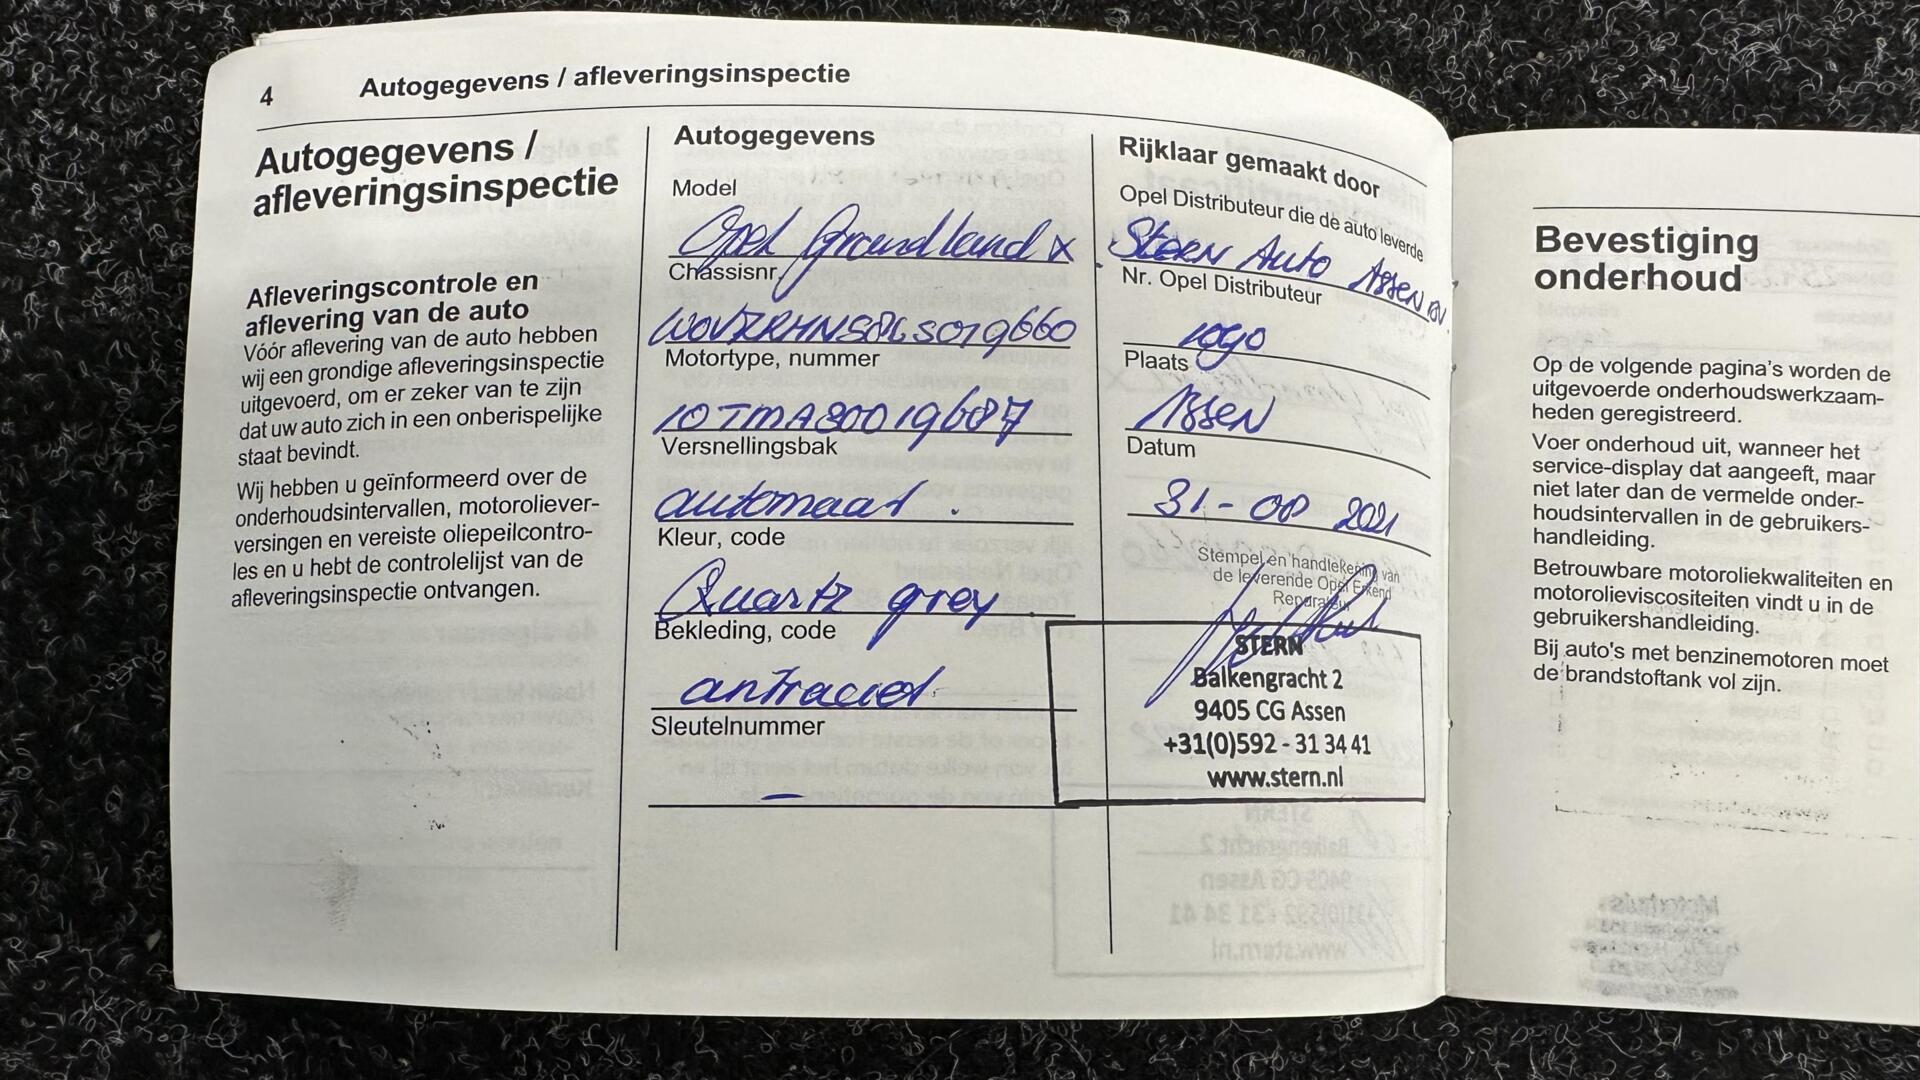 4 Autogegevens / afleveringsinspectie
Autogegevens /
afleveringsinspectie
Afleveringscontrole en
aflevering van de auto
Vóór aflevering van de auto hebben
wij een grondige afleveringsinspectie
uitgevoerd, om er zeker van te zijn
dat uw auto zich in een onberispelijke
staat bevindt.
Wij hebben u geïnformeerd over de
onderhoudsintervallen, motoroliever-
versingen en vereiste oliepeilcontro-
les en u hebt de controlelijst van de
afleveringsinspectie ontvangen.
Autogegevens
Model
Opel Grandland X
Chassisnr.
Motortype, nummer
Versnellingsbak
automaat
Kleur, code
Quartz grey
Bekleding, code
antraciet
Sleutelnummer
—
Rijklaar gemaakt door
Opel Distributeur die de auto leverde
Stern Auto Assen BV
Nr. Opel Distributeur
Plaats
Assen
Datum
31-08 2021
Stempel en handtekening van
de leverende Opel Erkend
Reparateur
STERN
Balkengracht 2
9405 CG Assen
+31(0)592 - 31 34 41
www.stern.nl
Bevestiging
onderhoud
Op de volgende pagina's worden de
uitgevoerde onderhoudswerkzaam-
heden geregistreerd.
Voer onderhoud uit, wanneer het
service-display dat aangeeft, maar
niet later dan de vermelde onder-
houdsintervallen in de gebruikers-
handleiding.
Betrouwbare motoroliekwaliteiten en
motorolieviscositeiten vindt u in de
gebruikershandleiding.
Bij auto's met benzinemotoren moet
de brandstoftank vol zijn.